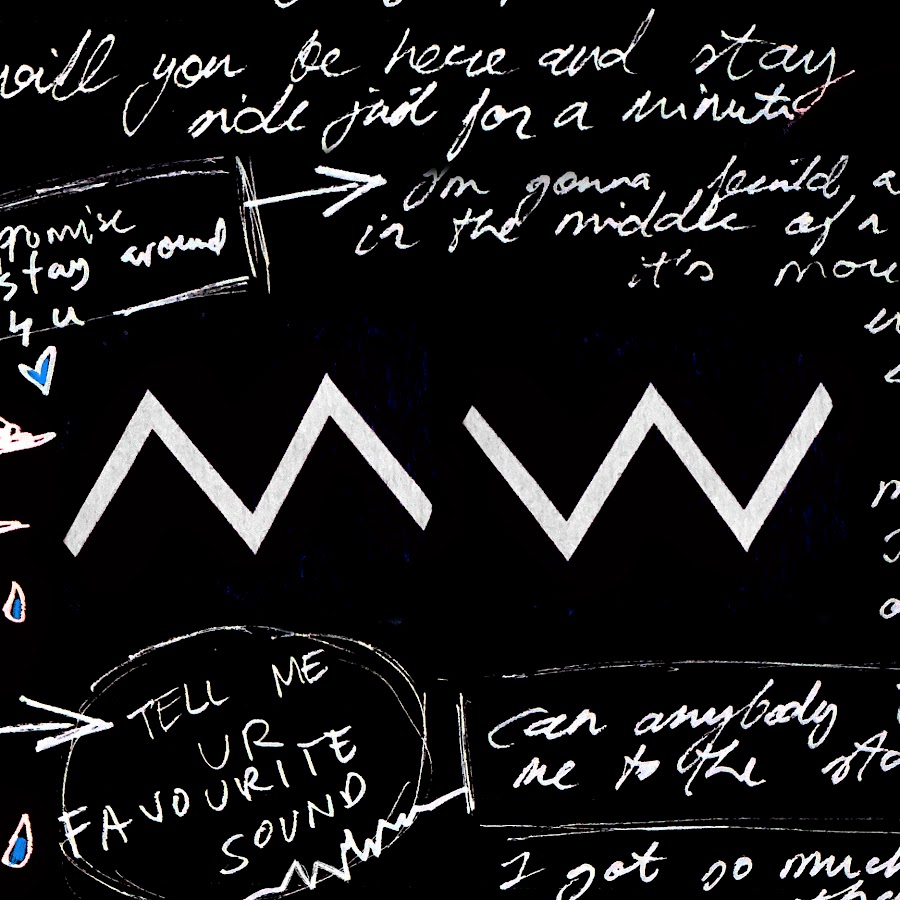 will you be here and stay
ride just for a minute
I'm gonna build a
in the middle of a
it's more
promise
stay around
4 u
M W
TELL ME
UR
FAVOURITE
SOUND
can anybody
me to the sta
I got so much